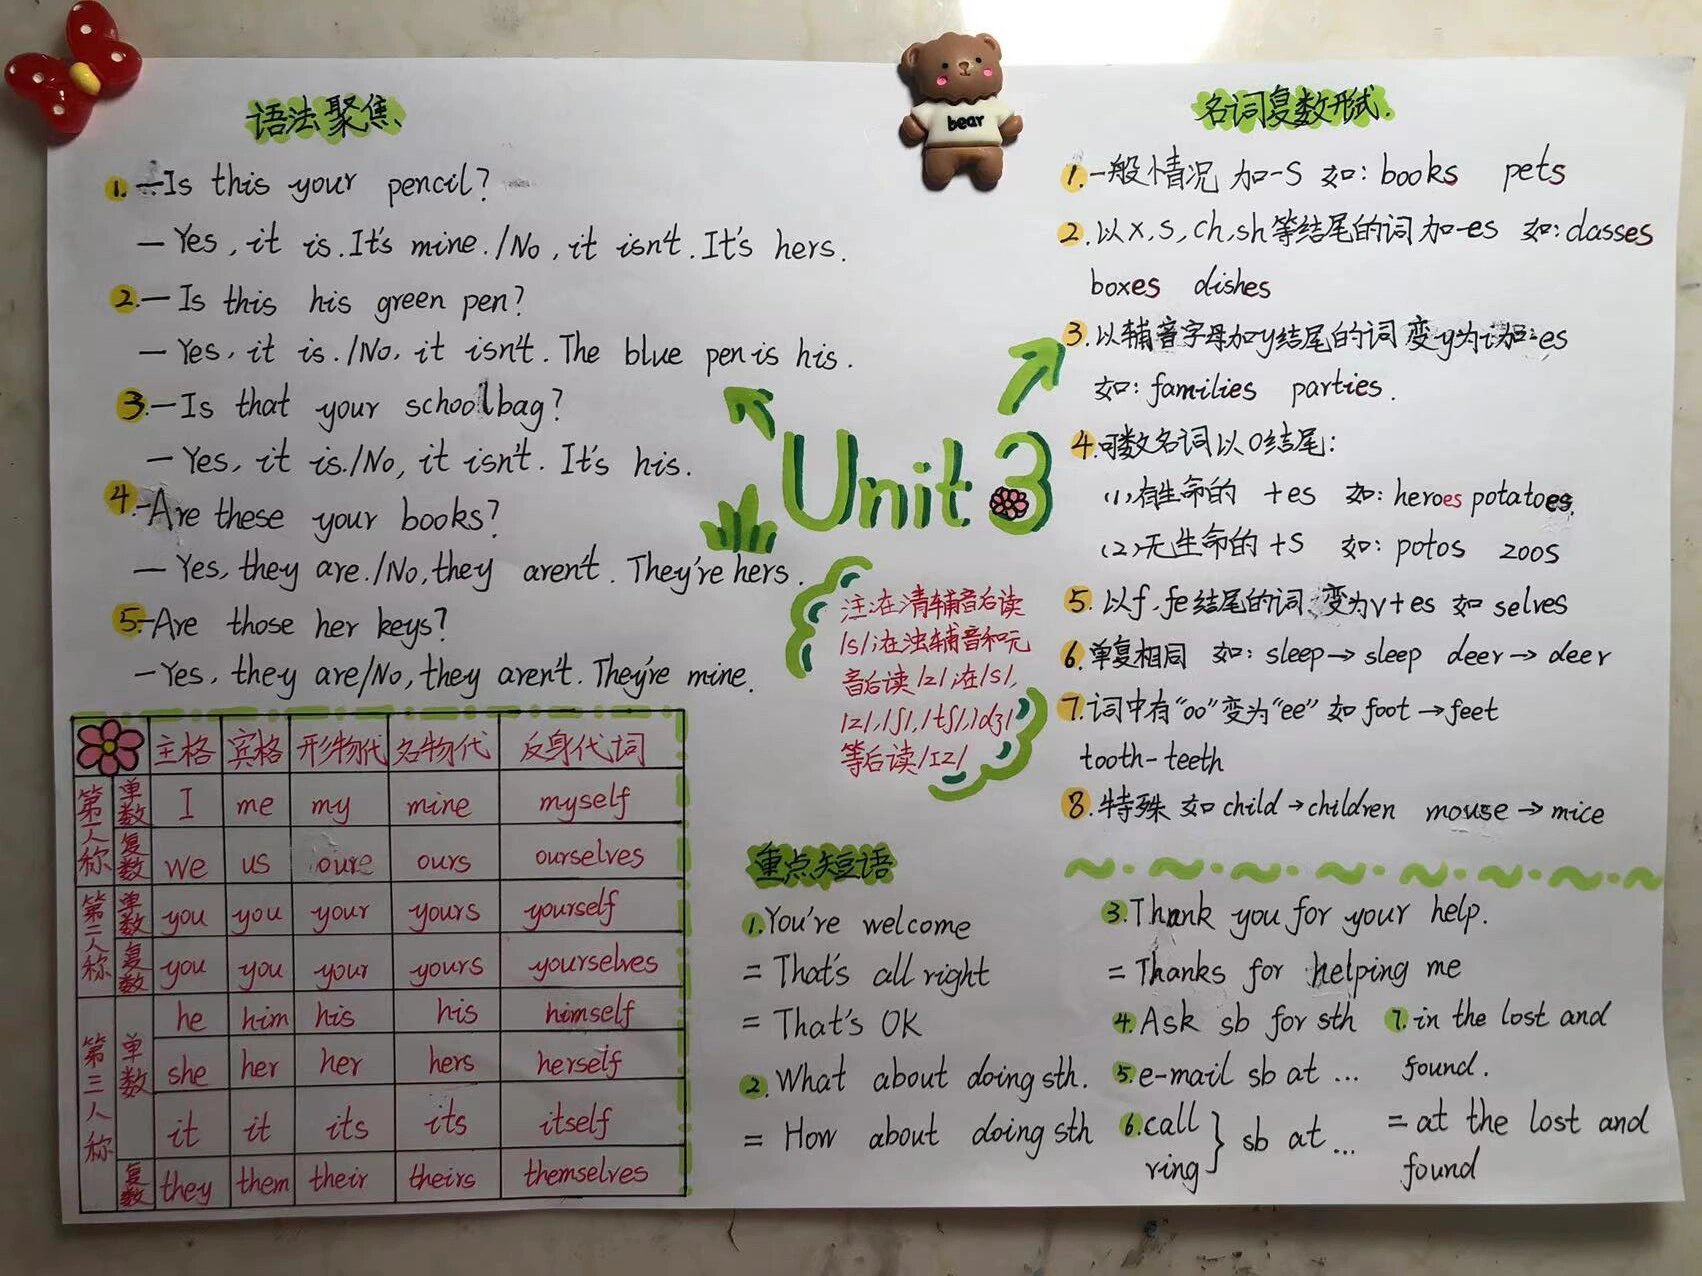 bear
语法聚焦
1.—Is this your pencil?
—Yes, it is. It's mine./No, it isn't. It's hers.
2.—Is this his green pen?
—Yes, it is./No, it isn't. The blue pen is his.
3.—Is that your schoolbag?
—Yes, it is./No, it isn't. It's his.
4.—Are these your books?
—Yes, they are./No, they aren't. They're hers.
5.—Are those her keys?
—Yes, they are/No, they aren't. They're mine.
主格 宾格 形物代 名物代 反身代词
第一人称 单数 I me my mine myself
复数 we us oure ours ourselves
第二人称 单数 you you your yours yourself
复数 you you your yours yourselves
第三人称 单数 he him his his himself
she her her hers herself
it it its its itself
复数 they them their theirs themselves
Unit 3
注:在清辅音后读
/s/;在浊辅音和元
音后读/z/;在/s/,
/z/,/ʃ/,/tʃ/,/dʒ/
等后读/ɪz/
名词复数形式.
1.一般情况 加-s 如: books pets
2.以x,s,ch,sh等结尾的词加-es 如: classes
boxes dishes
3.以辅音字母加y结尾的词 变y为i加-es
如: families parties.
4.可数名词以o结尾:
(1)有生命的 +es 如: heroes potatoes.
(2)无生命的 +s 如: potos zoos
5.以f,fe结尾的词 变为v+es 如 selves
6.单复相同 如: sleep→sleep deer→deer
7.词中有"oo"变为"ee" 如 foot→feet
tooth-teeth
8.特殊 如 child→children mouse→mice
重点短语
1.You're welcome
= That's all right
= That's OK
2.What about doing sth.
= How about doing sth
3.Thank you for your help.
= Thanks for helping me
4.Ask sb for sth
5.e-mail sb at ...
6.call
ring} sb at ...
7.in the lost and
found.
= at the lost and
found